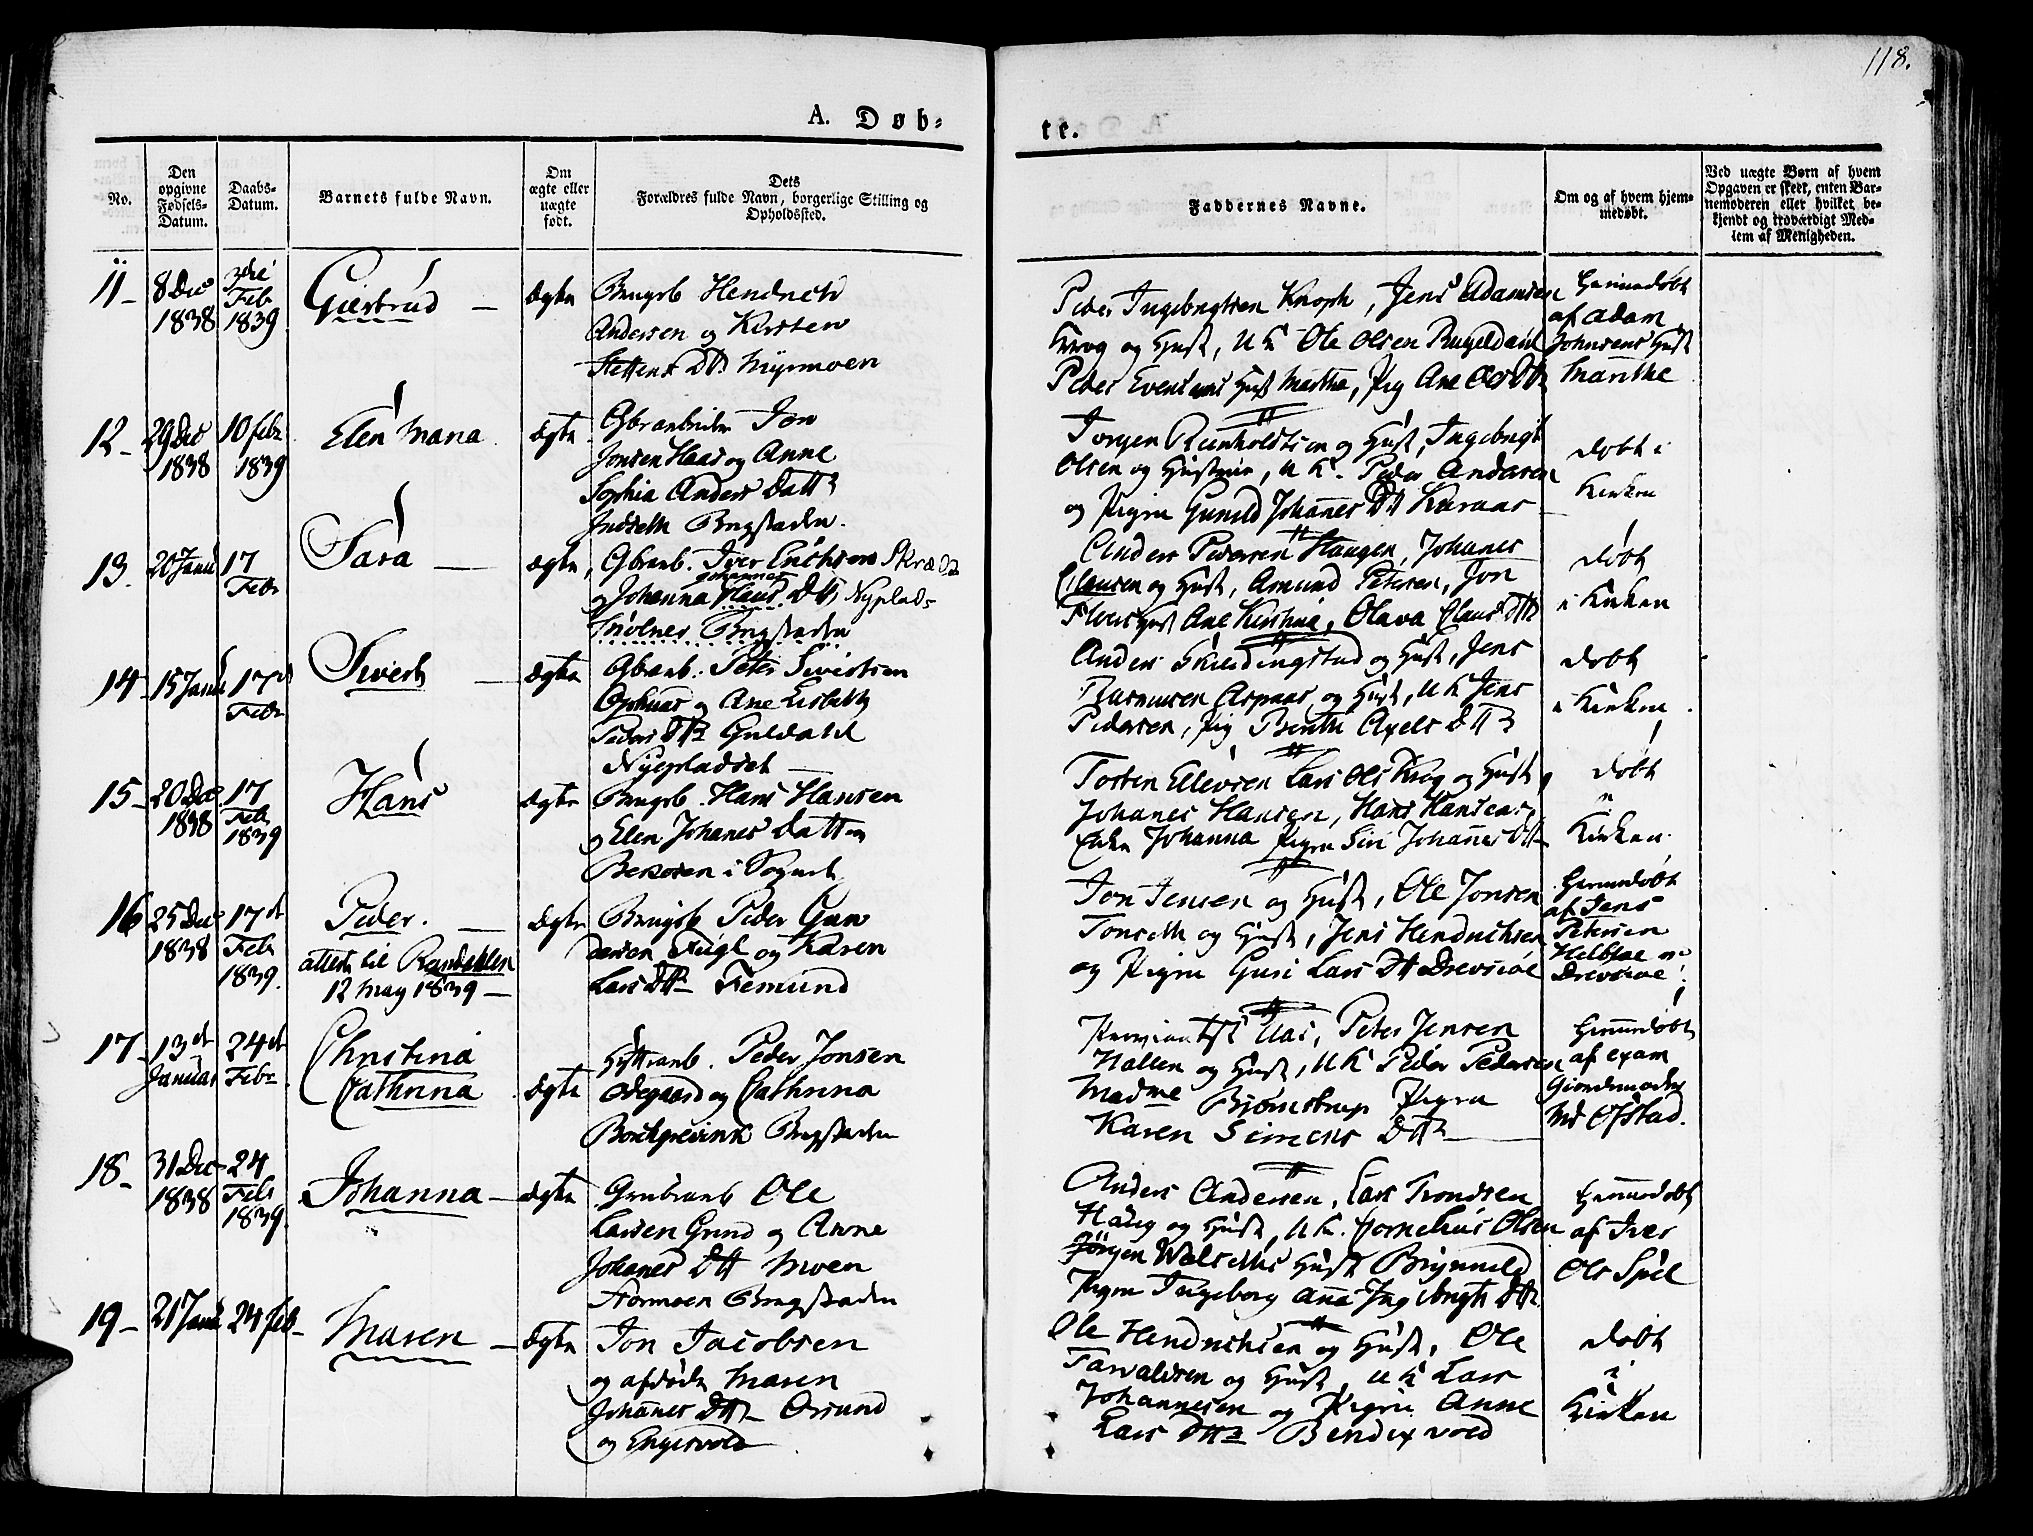 118.
A. Døb=
te.
No.
Den opgivne Fødsels-Datum.
Daabs-Datum.
Barnets fulde Navn.
Om ægte eller uægte født.
Dets Forældres fulde Navn, borgerlige Stilling og Opholdssted.
Faddernes Navne.
Om og af hvem hjem-medøbt.
Ved uægte Børn af hvem Opgaven er skeet, enten Bar-nemoderen eller hvilket be-kjendt og troværdigt Med-lem af Menigheden.
11 -
8 Dec
1838
3die
Feb
1839
Giertrud -
Ægte
Brugsb Hendrich
Andersen og Kirsten
Dtt. Myrmoen
Peder Ingebrigtsen Knoph, Jens Adamsen
Krog og Hust, U K Ole Olsen
Peder Evensens Hust Marthe, Pig Ane
Hiemmedøbt
af Adam
Johnsens Hust
Marithe
12 -
29 Dec
1838
10 Febr
1839
Elen Maria
Ægte
Gbrarbeider Jon
Jonsen Haas og Anne
Sophia Anders Datt
Indseth Bergstaden.
Jørgen Reinholdtsen og Hust, Ingebrigt
Olsen og Hustrue, U K. Peder Andersen
og Pigen Gunild Johannes Dtt Kuraas
døbt i
Kirken
13.
20 Janu
17
Feb
Sara -
Ægte,
Gbrarb. Iver Erichsen
og Johanna Hans Dtt, Nyplads
Johannes
Bergstaden
Anders Pedersen Haugen, Johanes
Clausen og Hust, Amund Petersen, Jon
Hust Ane Kirstina, Olava Claus Dtt
døbt
i Kirken
14 -
15 Janu
17d
Feb
Sivert -
Ægte
Gbrarb. Peter Sivertsen
Ophuus og Ane Lisbeth
Peders Dtt Guldahl
Nyepladset -
Anders Skieldingstad og Hust, Jens
Rasmusen Aspaas og Hust, U K Jens
Pedersen, Pig Berith Axels Dtt
døbt
i Kirken
15 -
20 Dec
1838
17
Feb
1839
Hans
Ægte
Brugsb. Hans Hansen
og Elen Johanes Datter
i Sognet
Torsten Ellevsen Lars Ols Krog og Hust,
Johanes Hansen, Hans Hansens
Enke Johanna Pigen Siri Johannes Dtt
døbt
i
Kirken
16
25 Dec
1838
17d
Feb
1839.
Peder. -
attest til Rendahlen
12 May 1839 -
Ægte
Brugsb Peder Gun
dersen Fugl og Karen
Lars Dtt Femund
Jon Jensen og Hust, Ole Jonsen
Tonseth og Hust, Jens Hendrichsen
og Pigen Guri Lars Dtt Drevsiøe
Hiemmedøbt
af Jens
Petersen
Drevsiøe
17 -
13d
Januar
24d
Feb
Christina
Cathrina
Ægte
Hyttearb. Peder Jonsen
Ødegaard og Cathrina
Borchgrevink Bergstaden
Aas, Peter Jensen
Hallen og Hust, U K Peder Pedersen
Madme Bjørnstrup Pigen
Karen Simens Dtt
Hiemmedøbt
af exam
Giordemoder
Md Ofstad.
18 -
31 Dec
1838
24
Feb
1839
Johanna -
Ægte
Grubearb Ole
Larsen Grind og Anne
Johanes Dtt Moen
Bergstaden
Anders Andersen, Lars Trondsen
og Hust, U K. Cornelius Olsen
Jørgen Hust Brynnild
Pigen Ingeborg Anna Ingebrigts Dtt
Hiemmedøbt
af Iver
Ols Spel
19 -
21 Janu
24 feb -
Maren -
Ægte
Jon Jacobsen
og afdøde Maren
Johannes Dtt Osund
og Engesvold
Ole Hendrichsen og Hust, Ole
Tarvaldsen og Hust, U K Lars
Johannesen og Pigen Anne
Lars Dtt Bendexvold
døbt
i
Kirken